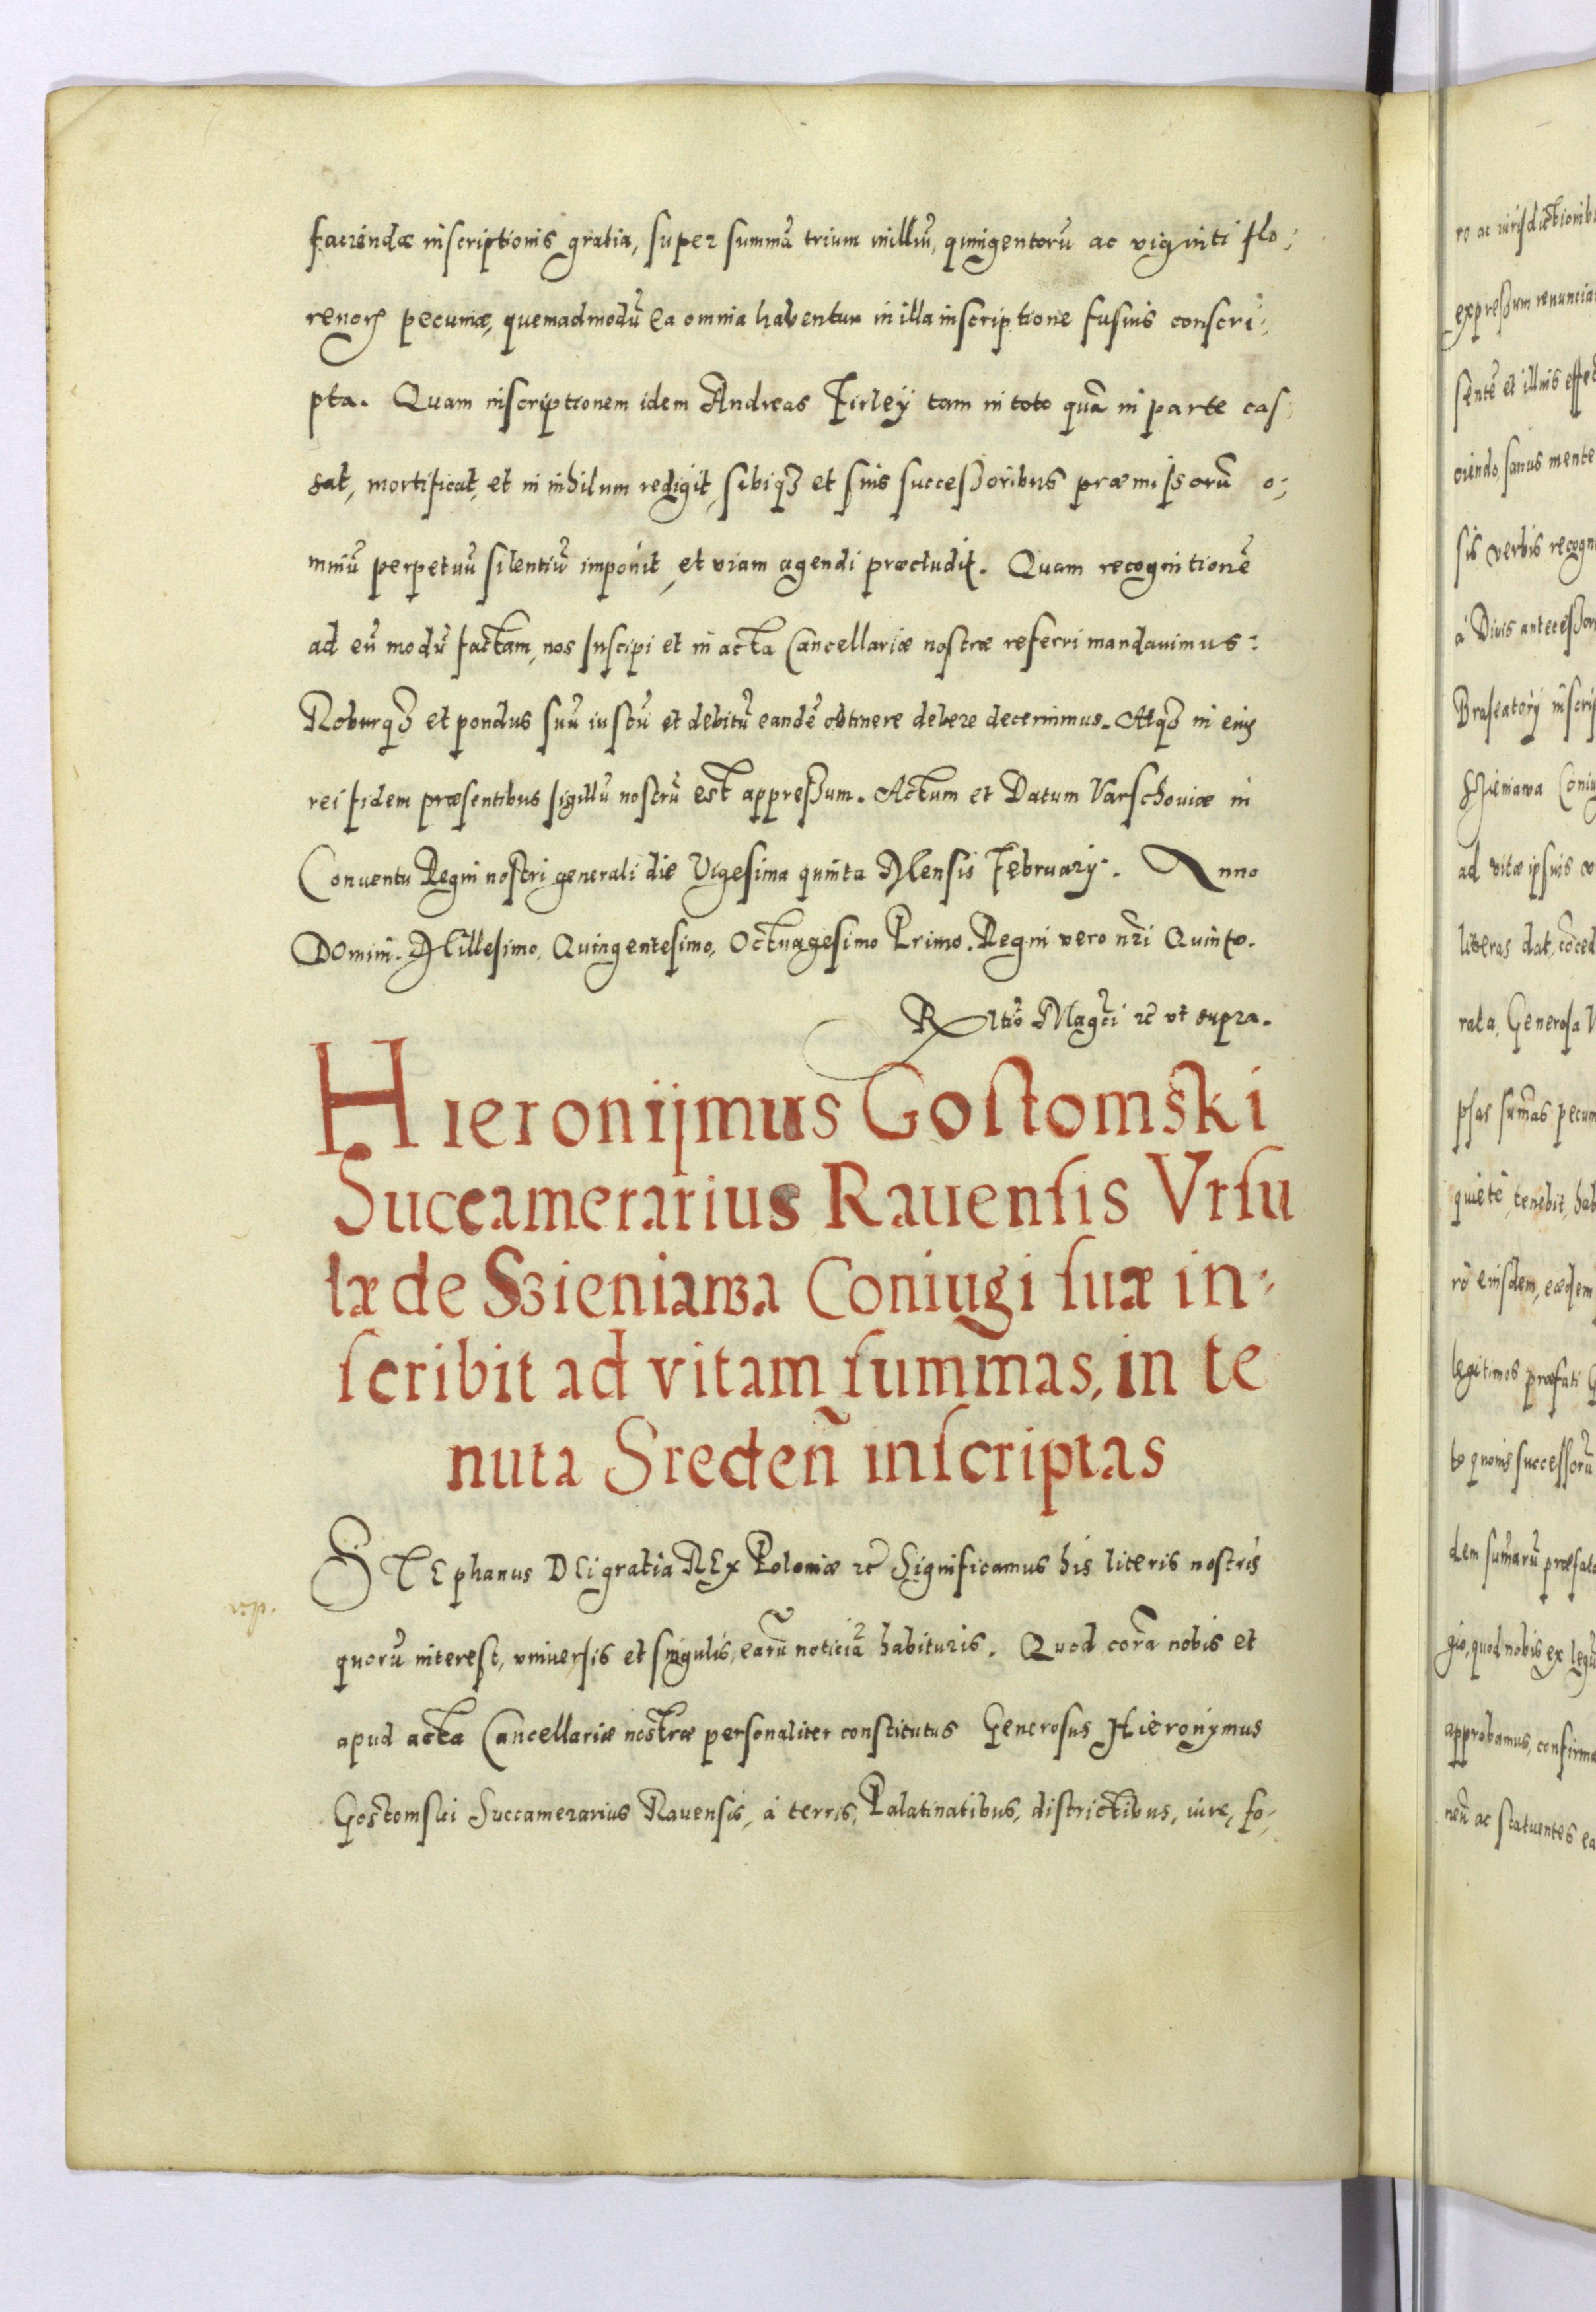 faciendæ inscriptionis gratia, super summã trium milliũ, quingentorũ ac viginti flo,
renorꝝ pecuniæ, quemadmodũ ea omnia habentur in illa inscriptione fusius conscri,
pta. Quam inscriptionem idem Andreas Firleÿ tam in toto quã in parte cas
sat, mortificat, et in nihilum redigit, sibiqꝫ et suis successoribus præmissorũ o,
mniũ perpetuũ silentiũ imponit, et viam agendi præcludit. Quam recognitionẽ
ad eũ modũ factam, nos suscipi et in acta Cancellariæ nostræ referri mandauimus:
Roburqꝫ et pondus suũ iustũ et debitũ eandẽ obtinere debere decernimus. Atqꝫ in eius
rei fidem præsentibus sigillũ nostrũ est appressum. Actum et Datum Varschouiæ in
Conuentu Regni nostri generali die Vigesima quinta Mensis Februarÿ. Anno
Domini. Millesimo, Quingentesimo, Octuagesimo Primo. Regni vero nr̃i Quinto.
Rltio Magci ꝛc̃ vt supra.
Hieronijmus Gostomski
Succamerarius Rauensis Vrsu
læ de Szieniawa Coniugi suæ in,
scribit ad vitam summas, in te
nuta Sredeñ inscriptas
STEphanus DEi gratia REx Poloniæ ꝛc̃ Significamus his literis nostris
quorũ interest, vniuersis et singulis, earũ noticiã habituris. Quod corã nobis et
apud acta Cancellariæ nostræ personaliter constitutus Generosus Hieronÿmus
Gostomski Succamerarius Rauensis, á terris, Palatinatibus, districtibus, iure, fo,
ro ac iurisdictionib
expressum renuncia
sentẽ et illius effec
oiendo, sanus mente
sis verbis recogn
á Diuis antecessor
inscrip
Szieniawa Coniu
ad vitæ ipsius
literas dat, cõced
rata, Generosa V
psas sum̃as pecun
quietẽ, tenebit, hab
rõ eiusdem, eædem
legitimos præfati G
successorũ
dem sum̃arũ præfat
gio, quod nobis ex legũ
approbamus, confirma
neñ ac statuentes ea